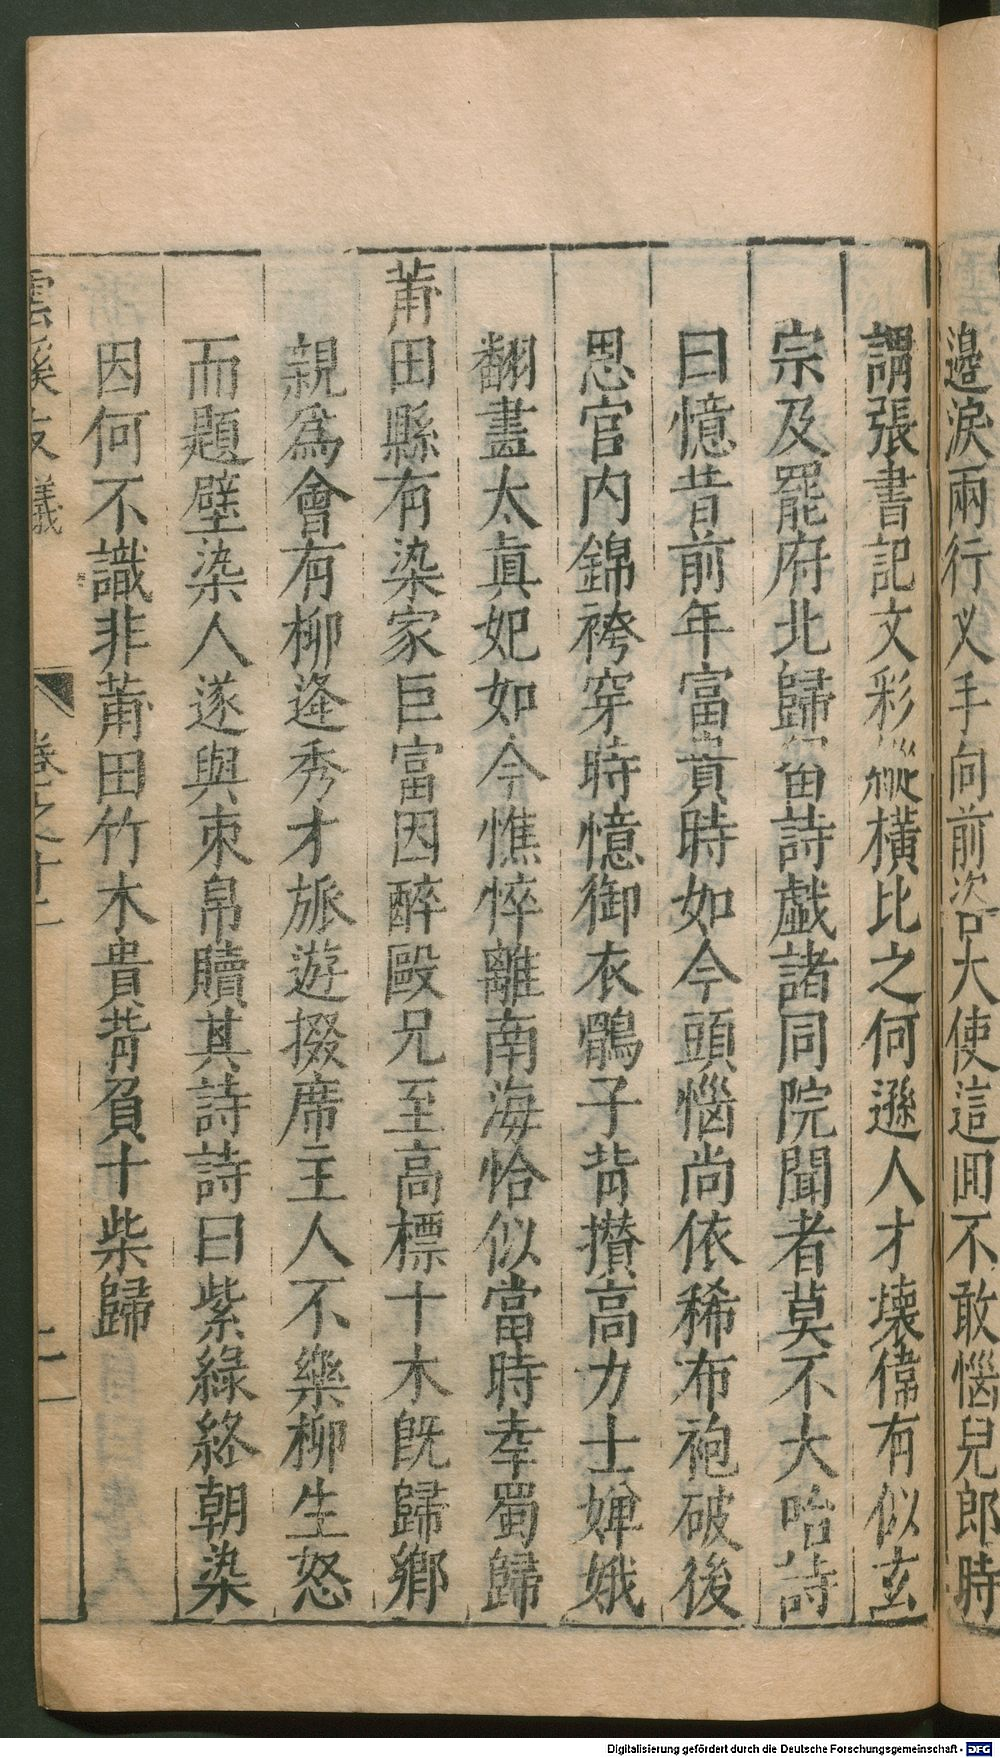 邉淚兩行义手向前次呂大使這囬不敢惱兒郎時
謂張書記文彩縱横比之何遜人才壊偉有似玄
宗及罷府北歸留詩戯諸同院聞者莫不大咍詩
曰憶昔前年富貴時如今頭惱尚依稀布袍破後
思官内錦袴穿時憶御衣鶻子背攢高力士嬋娥
翻畫太真妃如今憔悴離南海恰似當時幸蜀歸
莆田縣有染家巨富因醉毆兄至高標十木旣歸鄉
親爲會有柳逄秀才旅遊掇席主人不樂柳生怒
而題壁染人遂與束帛贖其詩詩曰紫綠終朝染
因何不識非莆田竹木貴背負十柴歸
雲溪友議
卷之十二
二
Digitalisierung gefördert durch die Deutsche Forschungsgemeinschaft - DFG